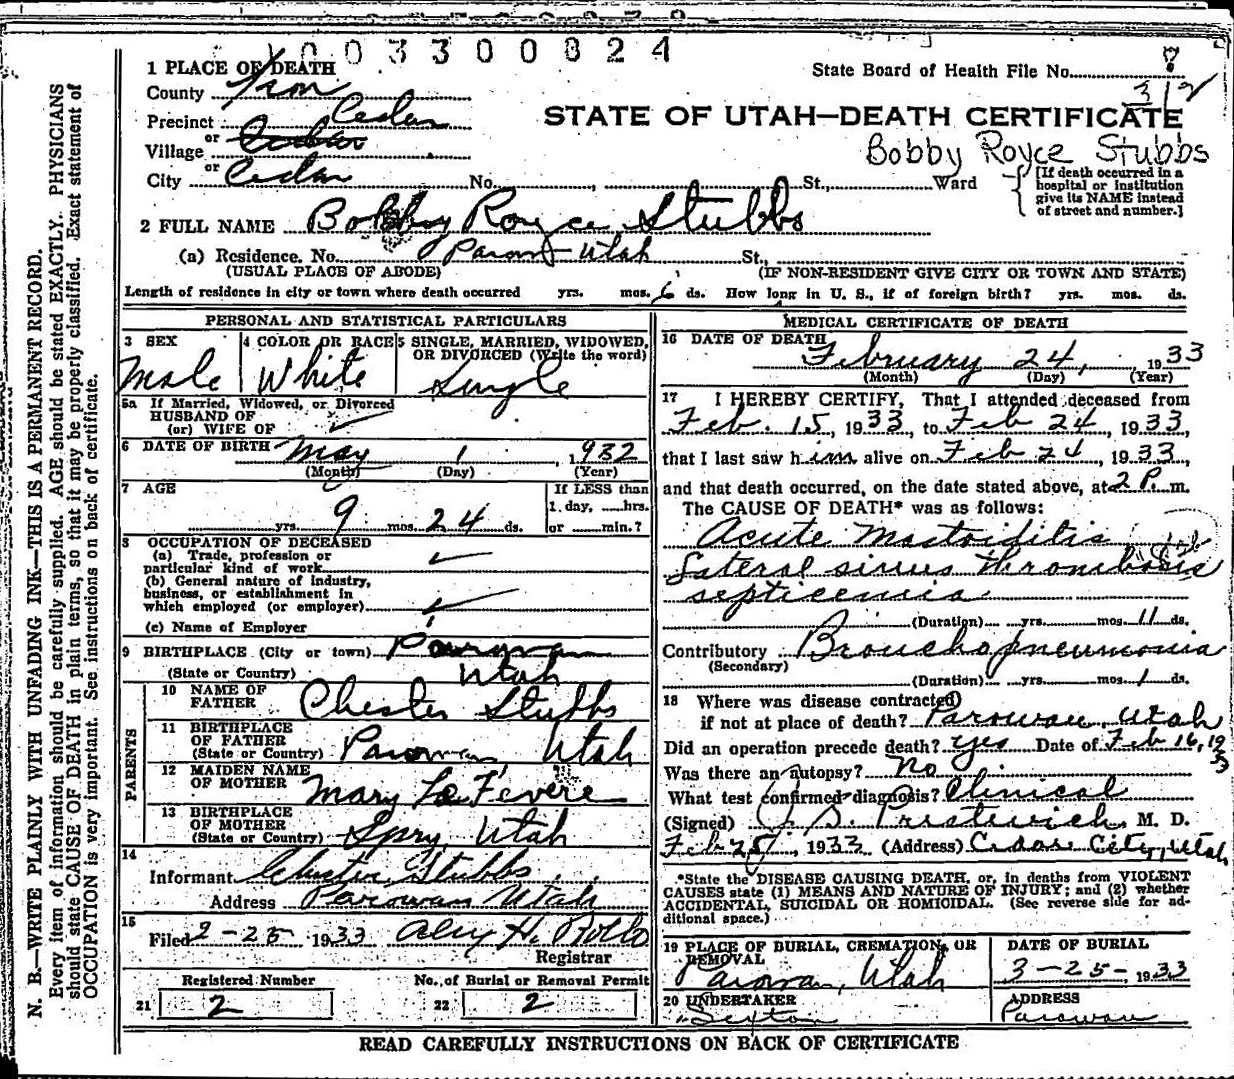 0 0 3 3 0 0 0 2 4
1 PLACE OF DEATH
State Board of Health File No.
County Iron
312
Precinct Cedar
STATE OF UTAH—DEATH CERTIFICATE
or
Village
Bobby Royce Stubbs
or
City Cedar No. , St., Ward
[If death occurred in a
hospital or institution
give its NAME instead
of street and number.]
2 FULL NAME Bobby Royce Stubbs
(a) Residence. No. Parowan Utah St.,
(USUAL PLACE OF ABODE) (IF NON-RESIDENT GIVE CITY OR TOWN AND STATE)
Length of residence in city or town where death occurred yrs. mos. 6 ds. How long in U. S., if of foreign birth? yrs. mos. ds.
PERSONAL AND STATISTICAL PARTICULARS
3 SEX
Male
4 COLOR OR RACE
White
5 SINGLE, MARRIED, WIDOWED,
OR DIVORCED (Write the word)
Single
5a If Married, Widowed, or Divorced
HUSBAND OF
(or) WIFE OF
6 DATE OF BIRTH May 1, 1932
(Month) (Day) (Year)
7 AGE
yrs. 9 mos. 24 ds.
If LESS than
1 day, hrs.
or min.?
8 OCCUPATION OF DECEASED
(a) Trade, profession or
particular kind of work
(b) General nature of industry,
business, or establishment in
which employed (or employer)
(c) Name of Employer
9 BIRTHPLACE (City or town) Parowan
(State or Country) Utah
PARENTS
10 NAME OF
FATHER Chester Stubbs
11 BIRTHPLACE
OF FATHER
(State or Country) Parowan, Utah
12 MAIDEN NAME
OF MOTHER Mary La Fevere
13 BIRTHPLACE
OF MOTHER
(State or Country) Spry, Utah
14
Informant Chester Stubbs
Address Parowan Utah
15
Filed 2-25 1933 Alex H. Rollo
Registrar
Registered Number
21 2
No. of Burial or Removal Permit
22 2
MEDICAL CERTIFICATE OF DEATH
16 DATE OF DEATH
February 24, 1933
(Month) (Day) (Year)
17 I HEREBY CERTIFY, That I attended deceased from
Feb. 15, 1933, to Feb 24, 1933,
that I last saw him alive on Feb 24, 1933,
and that death occurred, on the date stated above, at 2 P. m.
The CAUSE OF DEATH* was as follows:
Acute Mastoiditis
Lateral sinus thrombosis
septicemia
(Duration) yrs. mos. 11 ds.
Contributory Bronchopneumonia
(Secondary)
(Duration) yrs. mos. 1 ds.
18 Where was disease contracted
if not at place of death? Parowan, Utah
Did an operation precede death? yes Date of Feb 16, 1933
Was there an autopsy? No
What test confirmed diagnosis? Clinical
(Signed) J. S. Prestwich, M. D.
Feb 25, 1933 (Address) Cedar City, Utah
*State the DISEASE CAUSING DEATH, or, in deaths from VIOLENT
CAUSES state (1) MEANS AND NATURE OF INJURY; and (2) whether
ACCIDENTAL, SUICIDAL OR HOMICIDAL. (See reverse side for ad-
ditional space.)
19 PLACE OF BURIAL, CREMATION, OR
REMOVAL
Parowan, Utah
DATE OF BURIAL
3-25-1933
20 UNDERTAKER
Sexton
ADDRESS
Parowan
READ CAREFULLY INSTRUCTIONS ON BACK OF CERTIFICATE
N. B.—WRITE PLAINLY WITH UNFADING INK—THIS IS A PERMANENT RECORD.
Every item of information should be carefully supplied. AGE should be stated EXACTLY. PHYSICIANS
should state CAUSE OF DEATH in plain terms, so that it may be properly classified. Exact statement of
OCCUPATION is very important. See instructions on back of certificate.